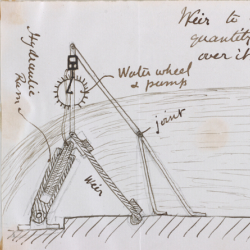 Weir to
quantity
over it
Hydraulic
Ram
Water wheel
& pump
joint
Weir